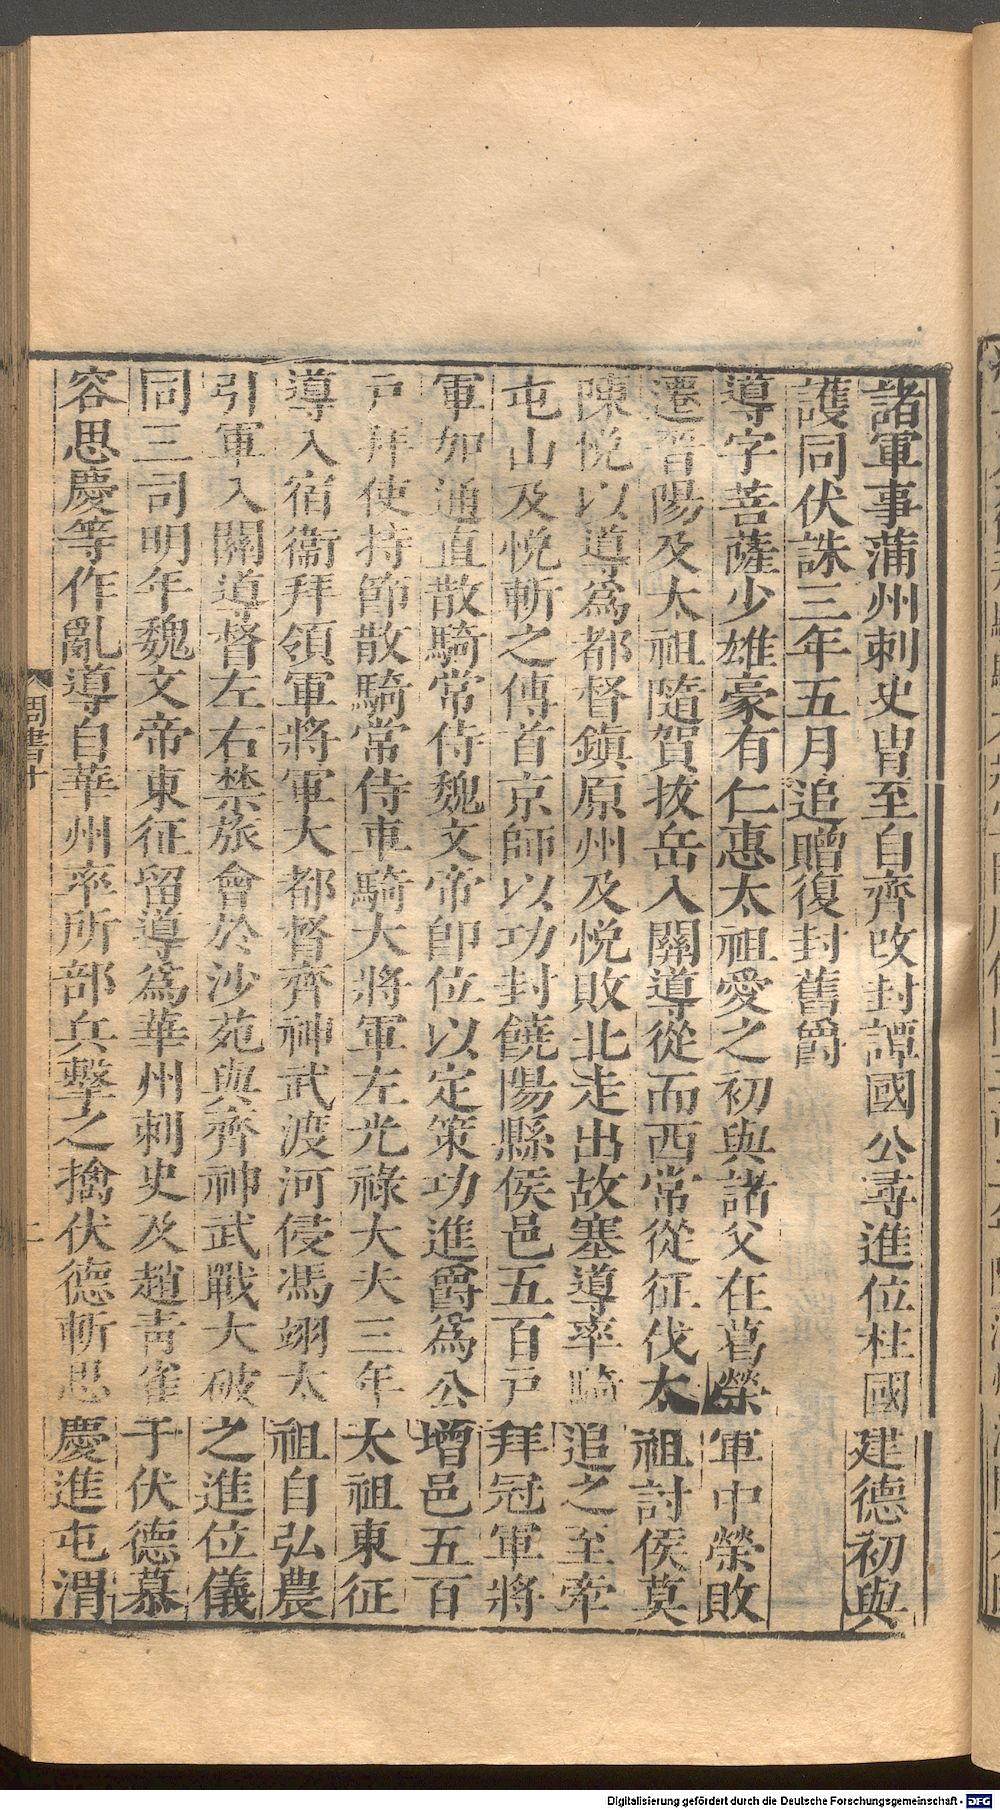 諸軍事蒲州刺史胄至自齊改封譚國公尋進位柱國建德初與
護同伏誅三年五月追贈復封舊爵
導字菩薩少雄豪有仁惠太祖愛之初與諸父在葛榮軍中榮敗
遷晉陽及太祖隨賀拔岳入關導從而西常從征伐太祖討侯莫
陳悅以導爲都督鎮原州及悅敗北走出故塞導率騎追之至牽
屯山及悅斬之傳首京師以功封饒陽縣侯邑五百戸拜冠軍將
軍加通直散騎常侍魏文帝卽位以定策功進爵爲公增邑五百
戸拜使持節散騎常侍車騎大將軍左光祿大夫三年太祖東征
導入宿衞拜領軍將軍大都督齊神武渡河侵馮翊太祖自弘農
引軍入關導督左右禁旅會於沙苑與齊神武戰大破之進位儀
同三司明年魏文帝東征留導爲華州刺史及趙青雀于伏德慕
容思慶等作亂導自華州率所部兵擊之擒伏德斬思慶進屯渭
周書十
Digitalisierung gefördert durch die Deutsche Forschungsgemeinschaft - DFG